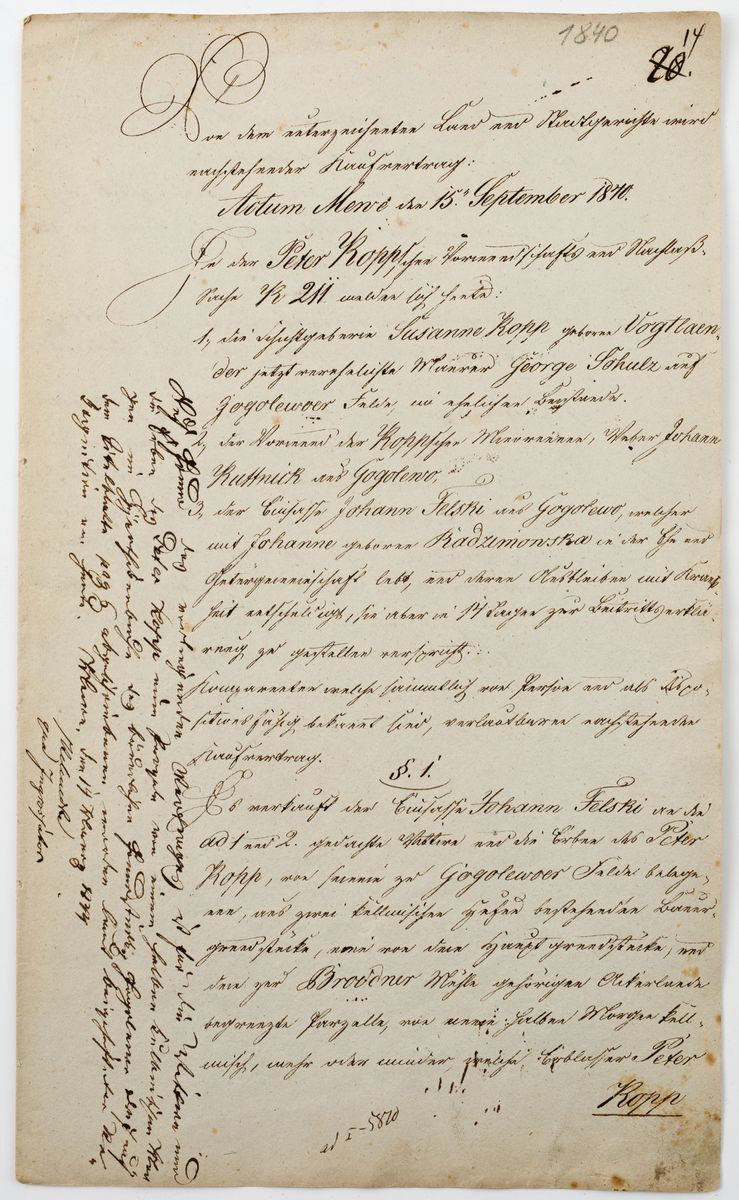 1840
14
20.
Von dem unterzeichneten Land und Stadtgerichte wird
nachstehender Kaufvertrag:
Actum Mewe den 15. September 1840.
In der Peter Koppschen Vormundschafts und Nachlaß-
Sache K 211 melden sich heute:
1, die Schichtgeberin Susanne Kopp geborne Vogtlaen-
der jetzt verehelichte Maurer George Schulz auf
Gogolewoer Felde, im ehelichen Beistande.
2, der Vormund der Koppschen Minorennen, Weber Johann
Kuttnick aus Gogolewo,
3, der Einsasse Johann Felski aus Gogolewo, welcher
mit Johanne geborne Radzimowska in der Ehe und
Gütergemeinschaft lebt, und deren Ausbleiben mit Krank-
heit entschuldigt, sie aber in 14 Tagen zur Beitrittserklä-
rung zu gestellen verspricht.
Komparenten welche sämmtlich von Person und als Dispo-
sitionsfähig bekannt sind, verlautbaren nachstehenden
Kaufvertrag.
§. 1.
Es verkauft der Einsasse Johann Felski an die
ad 1 und 2. gedachte Wittwe und die Erben des Peter
Kopp, von seinem zu Gogolewoer Felde belege-
nen, aus zwei kullmischen Hufen bestehenden Bauer-
grundstücke, eine von dem Hauptgrundstücke, und
dem zur Broodner Mühle gehörigen Ackerlande
begrenzte Parzelle, von einem halben Morgen kull-
misch, mehr oder minder, welche Erblasser Peter
Kopp
ad I-5820
Auf Grund des vorliegenden Vertrages ist für die Wittwe und
die Erben des Peter Kopp eine Parzele von einem halben kullmischen Mor
gen im Hypothekenbuche des bäuerlichen Grundstücks Gogolewo
dem abgeschrieben worden
Mewe, den 14 1844